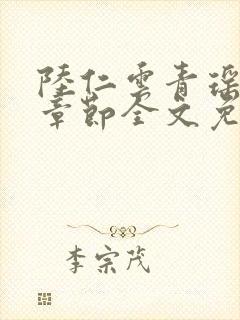 陸仁雲青瑶
章節全文免
李宗茂